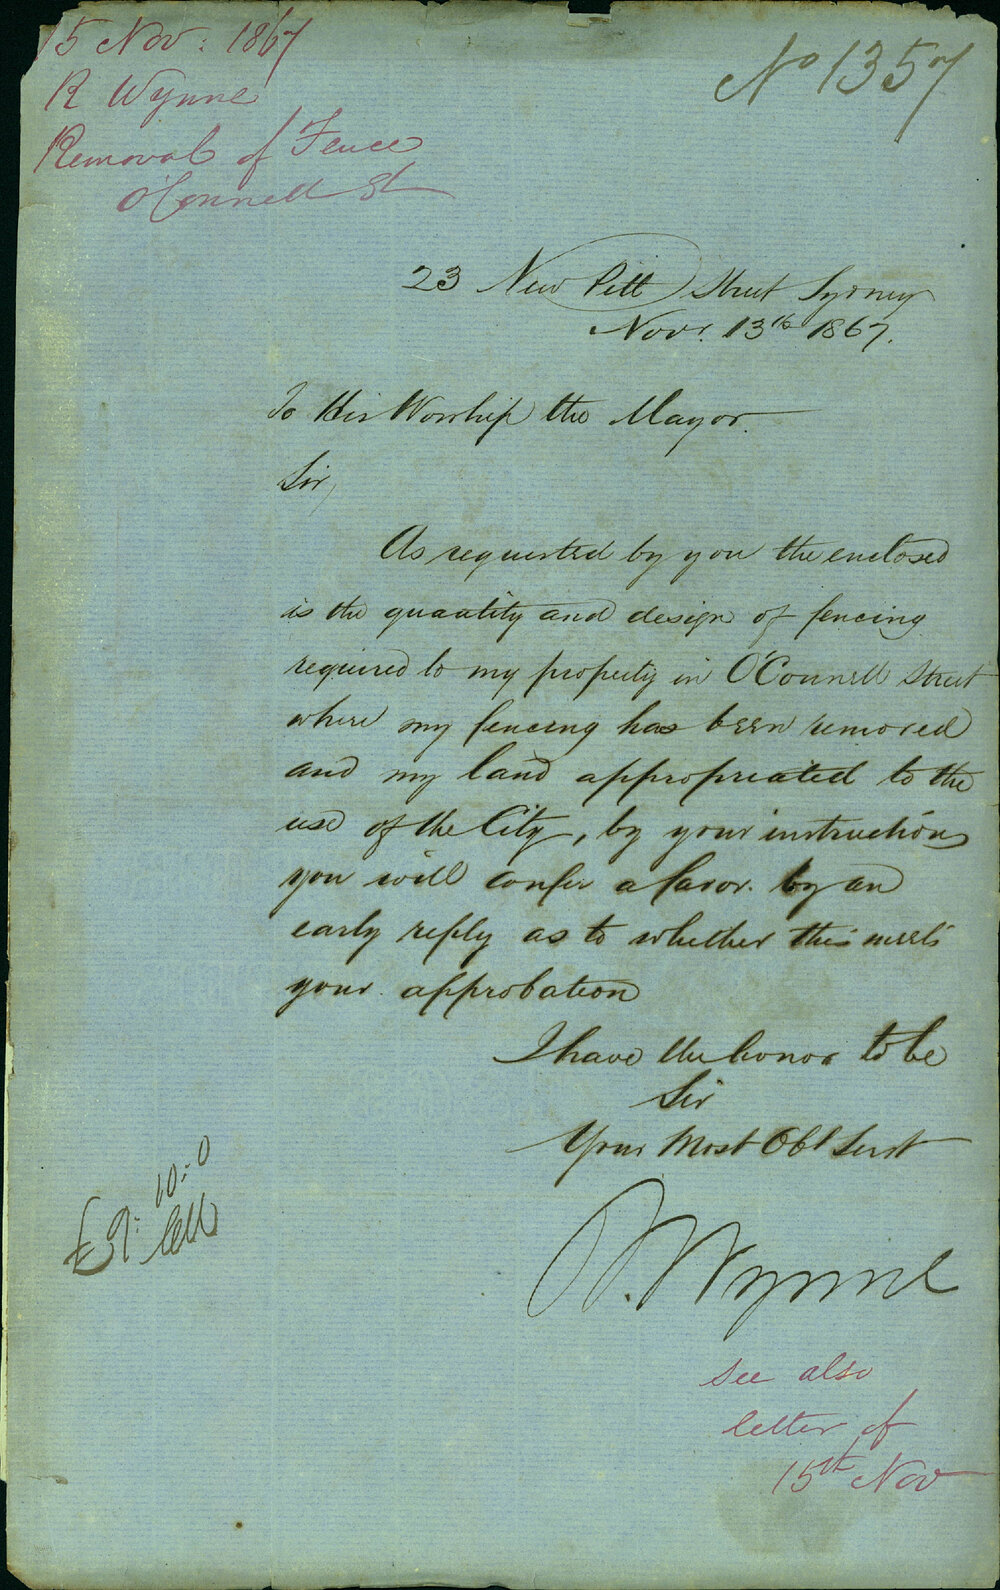 15 Nov: 1867
R Wynne
Removal of Fence
O'Connell St
No 1357
23 New Pitt Street Sydney
Novr. 13th 1867.
To His Worship the Mayor.
Sir,
As requested by you the enclosed
is the quantity and design of fencing
required to my property in O'Connell Street
where my fencing has been removed
and my land appropriated to the
use of the City, by your instructions
you will confer a favor by an
early reply as to whether this meets
your approbation
I have the honor to be
Sir
Your Most Obt Servt
R. Wynne
£91: 10: 0
see also
letter of
15th Nov